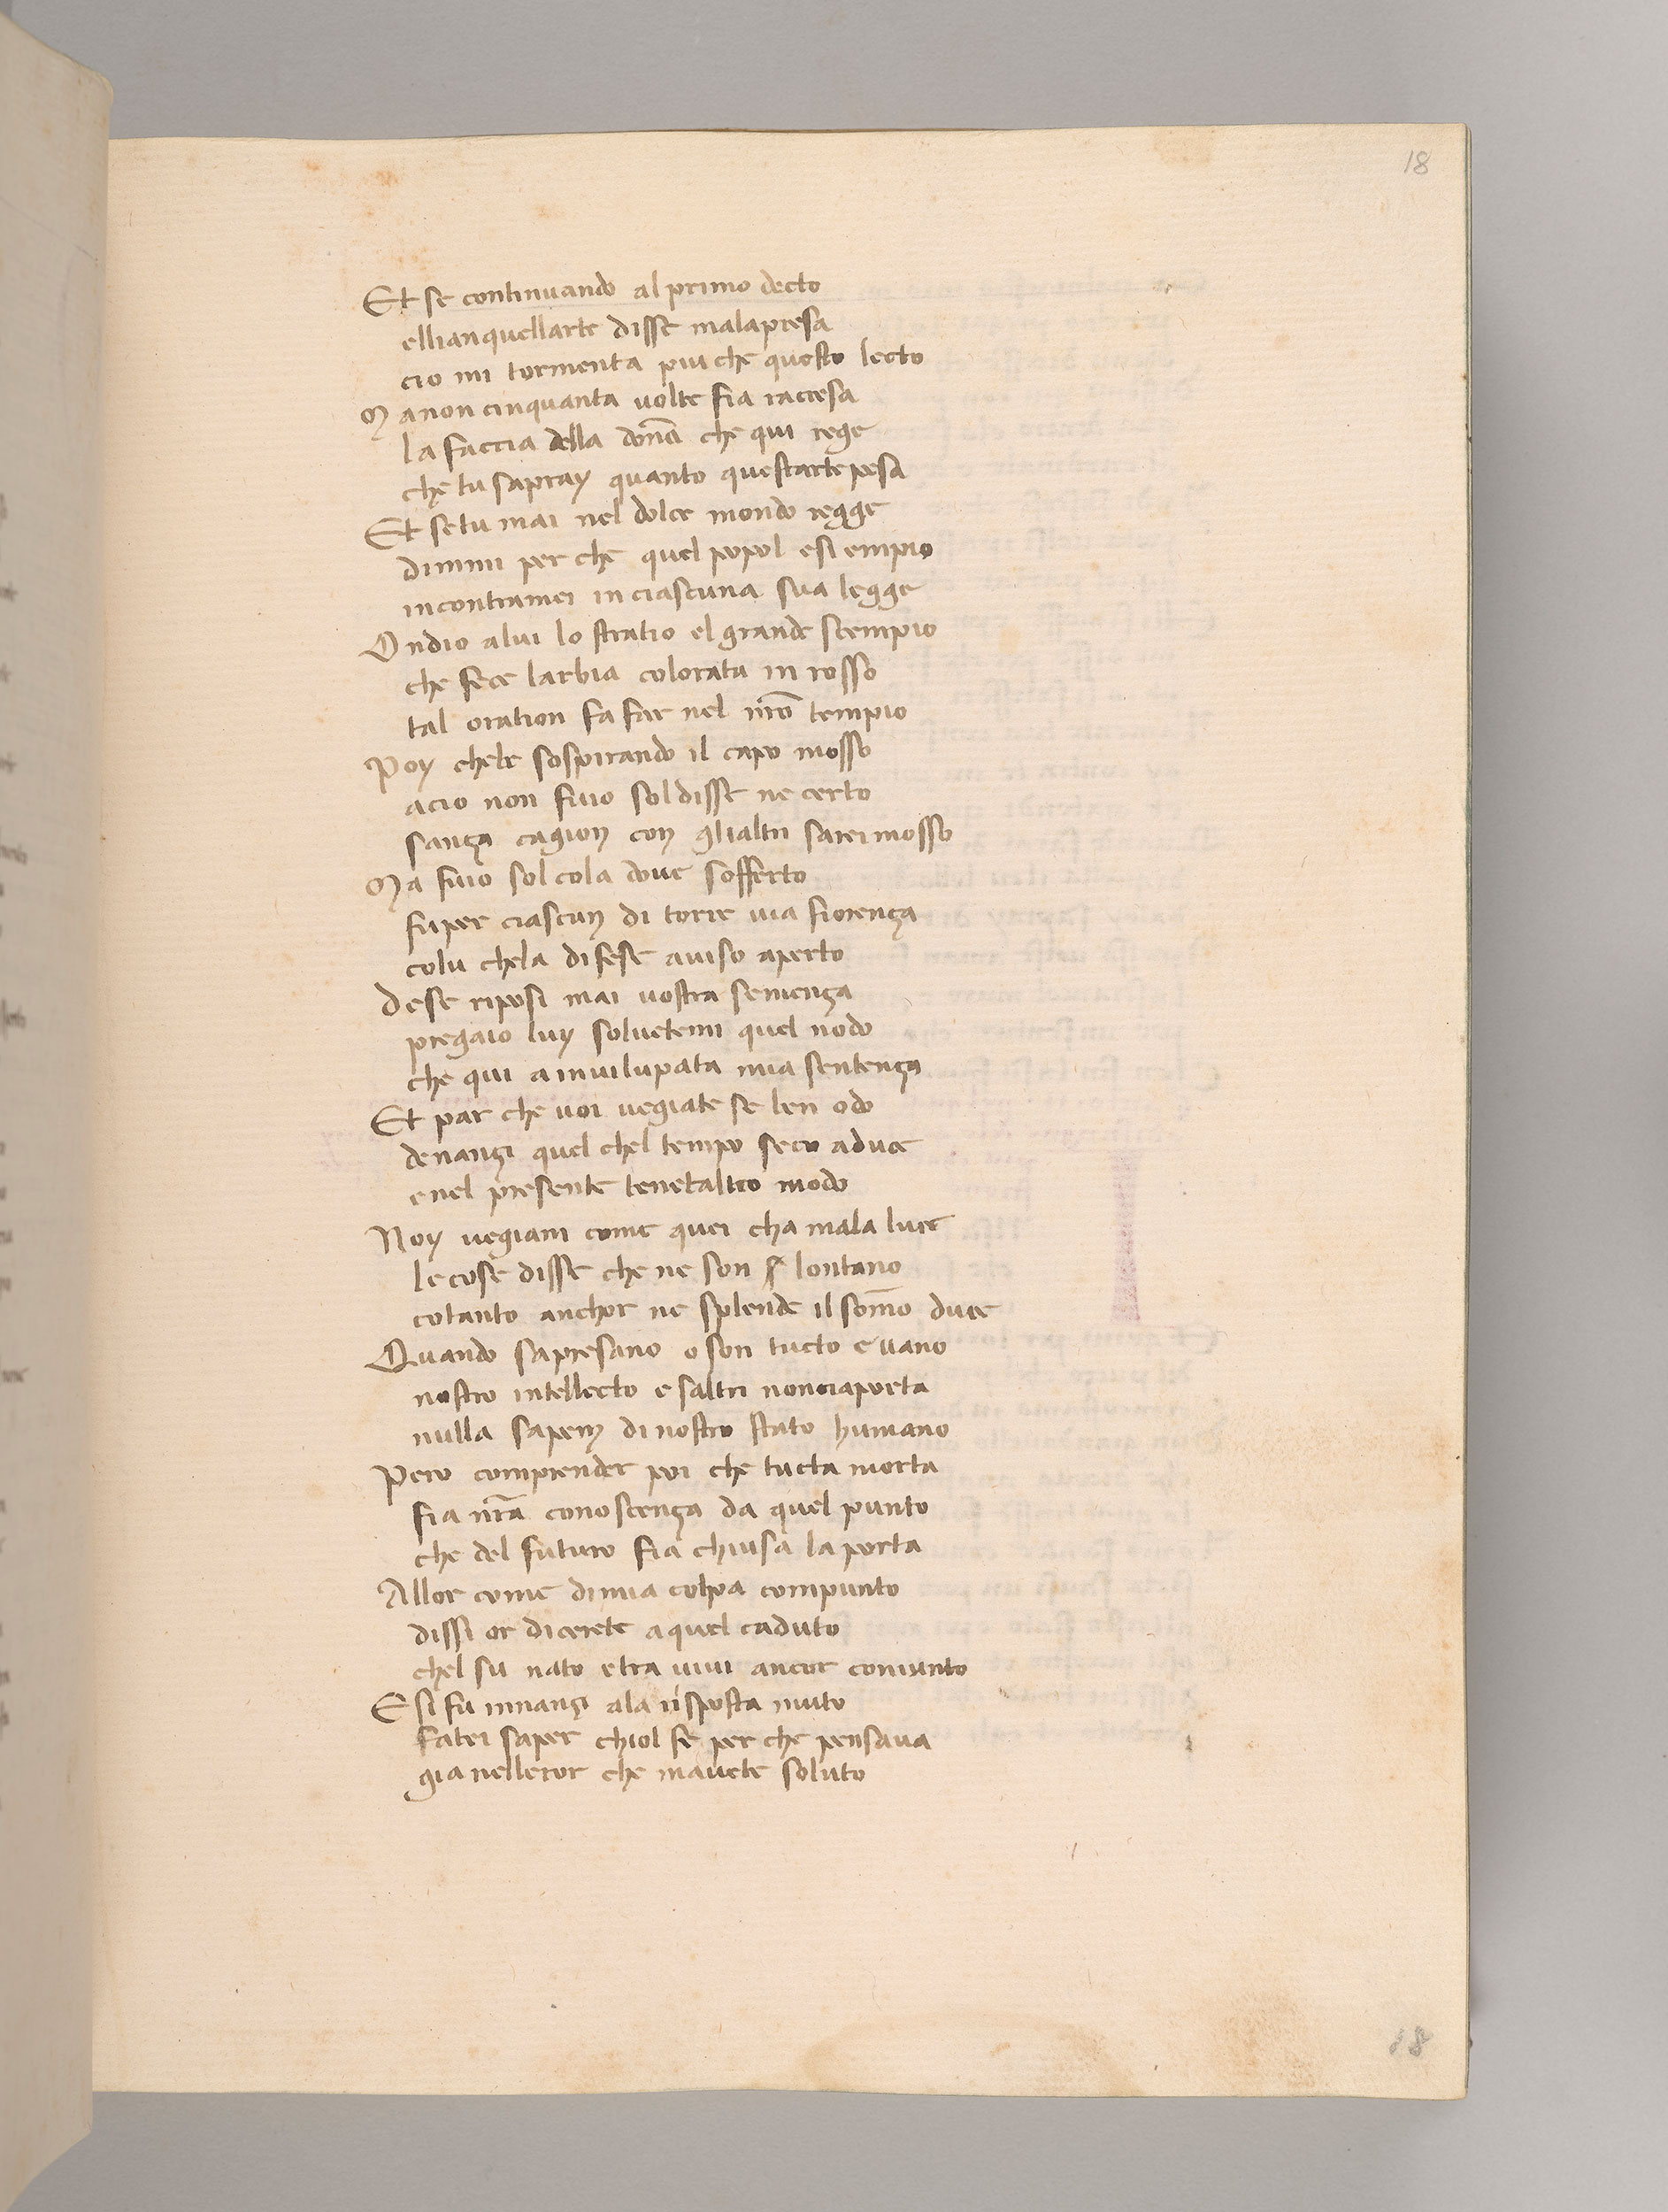 18
Et se continuando al primo decto
ellian quellarte disse malapresa
cio mi tormenta piu che questo lecto
Ma non cinquanta volte fia raccesa
la faccia della don̅a che qui rege
che tu sapray quanto questarte pesa
Et se tu mai nel dolce mondo regge
dimmi per che quel popol esi empio
incontramei in ciascuna sua legge
Ondio alui lo stratio el grande scempio
che fece larbia colorata in rosso
tal oration fa far nel nr̅o tempio
Poy chebe sospirando il capo mosso
acio non fuio sol disse ne certo
sança cagion con glialtri sarei mosso
Ma fuio sol cola dove sofferto
fu per ciascun di torre via fiorença
colu chela difese aviso aperto
De se riposi mai vostra semença
pregaio luy solvetemi quel nodo
che qui a invilupata mia sentença
Et par che voi vegiate se ben odo
denançi quel chel tempo seco aduce
e nel presente tenetaltro modo
Noy vegiam come quei cha mala luce
le cose disse che ne son lontano
cotanto anchor ne splende il som̅o duce
Quando sapresano o son tucto e vano
nostro intellecto e saltri nonciaporta
nulla sapem di nostro stato humano
Pero comprender poi che tucta morta
fia nr̅a conoscença da quel punto
che del futuro fia chiusa la porta
Allor come di mia colpa compunto
dissi or dicerete a quel caduto
chel su nato e tra vivi ancor coniunto
E si fu innançi ala risposta muto
fatei saper chiol fe per che pensava
gia nelleror che mavete soluto
18